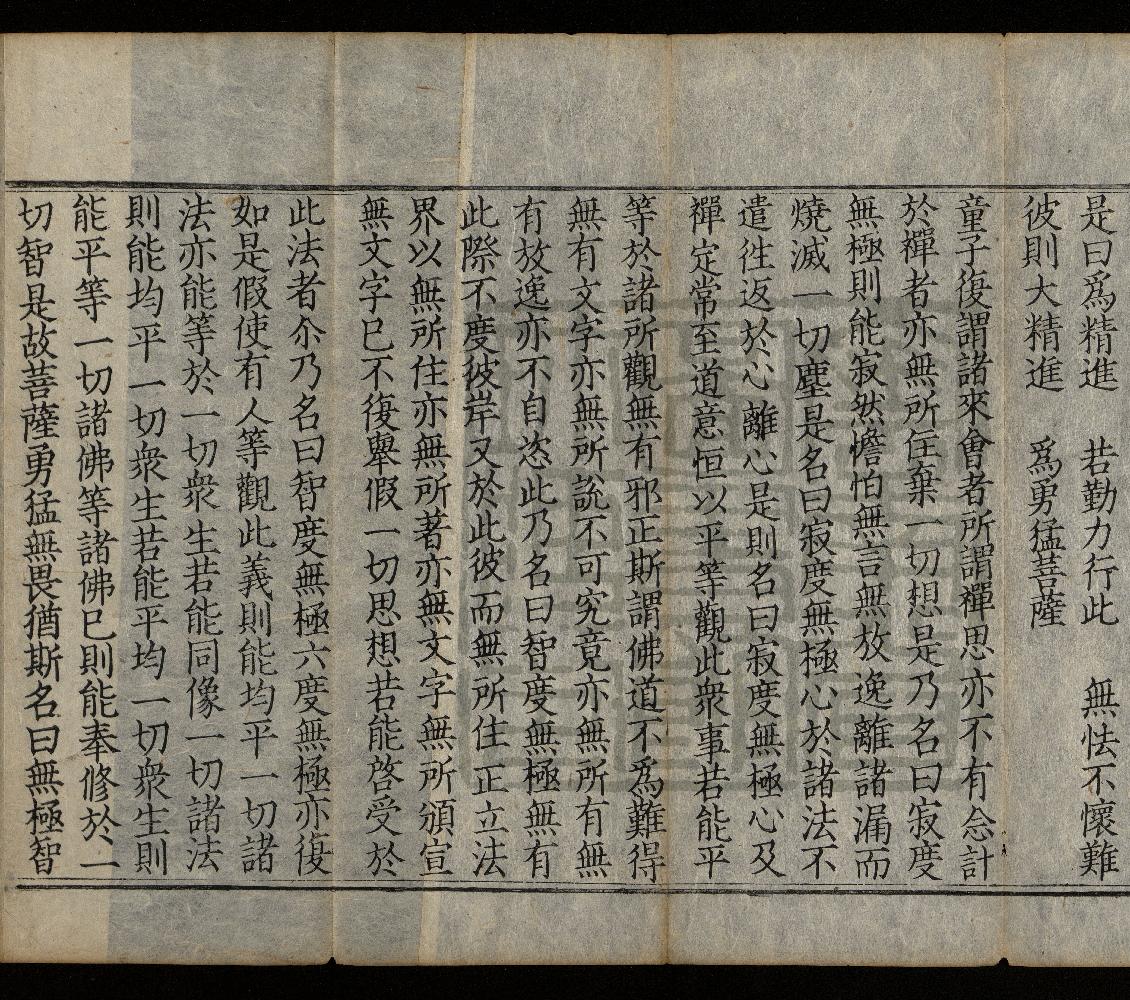 是曰爲精進　若勤力行此　無怯不懷難
彼則大精進　爲勇猛菩薩
童子復謂諸來會者所謂禪思亦不有念計
於禪者亦無所住棄一切想是乃名曰寂度
無極則能寂然憺怕無言無放逸離諸漏而
燒滅一切塵是名曰寂度無極心於諸法不
遣徃返於心離心是則名曰寂度無極心及
禪定常至道意恒以平等觀此衆事若能平
等於諸所觀無有邪正斯謂佛道不爲難得
無有文字亦無所說不可究竟亦無所有無
有放逸亦不自恣此乃名曰智度無極無有
此際不度彼岸又於此彼而無所住正立法
界以無所住亦無所著亦無文字無所頒宣
無文字已不復舉假一切思想若能啓受於
此法者尒乃名曰智度無極六度無極亦復
如是假使有人等觀此義則能均平一切諸
法亦能等於一切衆生若能同像一切諸法
則能均平一切衆生若能平均一切衆生則
能平等一切諸佛等諸佛已則能奉修於一
切智是故菩薩勇猛無畏猶斯名曰無極智